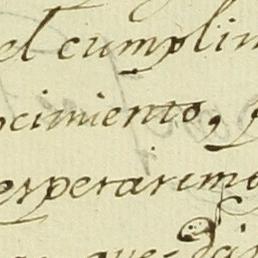 el cumplim
ocimiento, 
esperarimo
que da